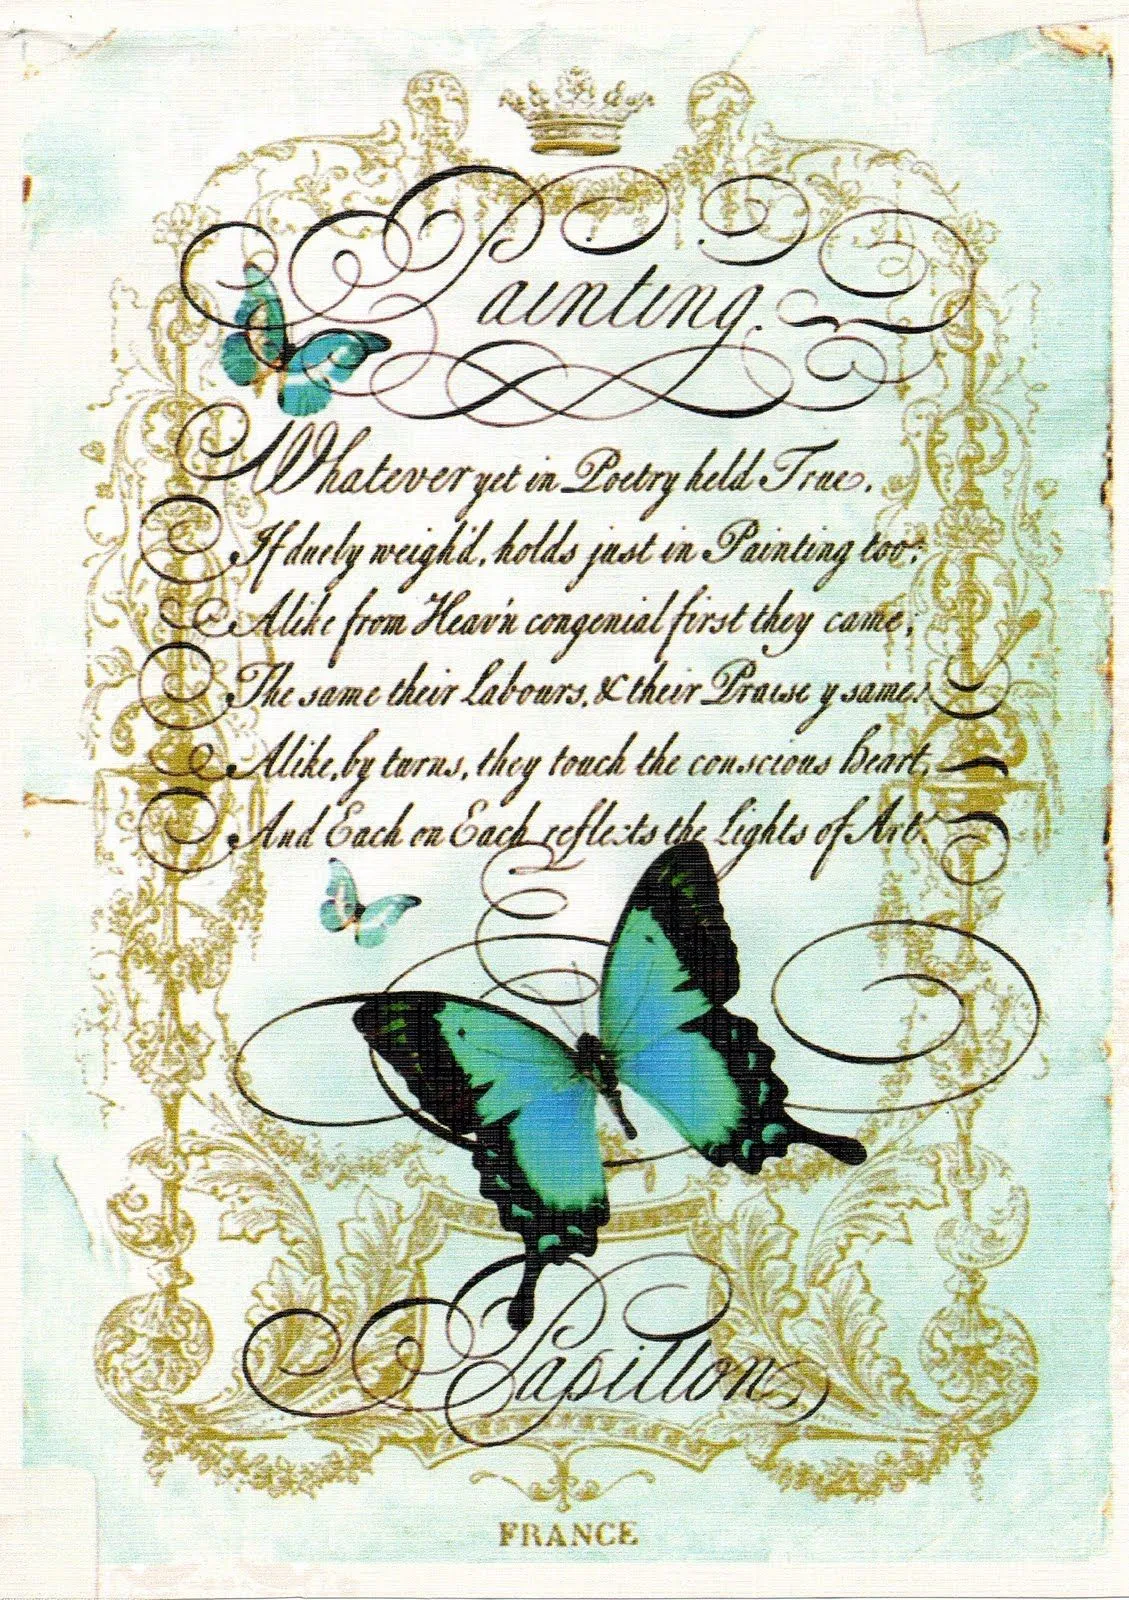 Painting.
Whatever yet in Poetry held True,
If duely weigh'd, holds just in Painting too:
Alike from Heav'n congenial first they came;
The same their Labours, & their Praise y same:
Alike, by turns, they touch the conscious heart,
And Each on Each reflects the Lights of Art.
Papillon
FRANCE